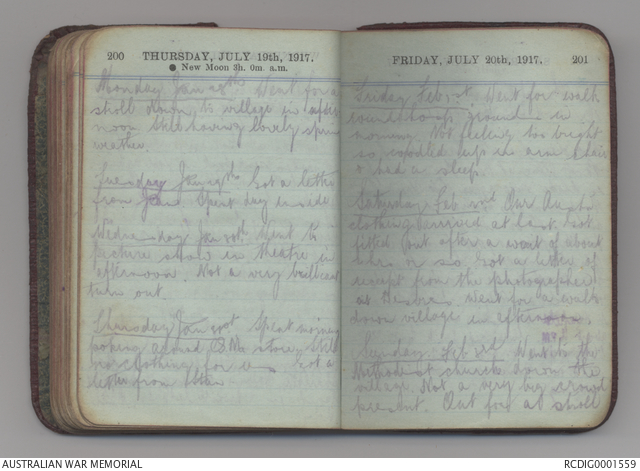 200 THURSDAY, JULY 19th, 1917.
● New Moon 3h. 0m. a.m.
Monday Jan 28th. Went for a
stroll down to village in after
noon. Still having lovely spring
weather.
Tuesday Jan 29th Got a letter
from Spent day inside
Wednesday Jan 30th Went to
picture show in theatre in
afternoon. Not a very brilliant
turn out.
Thursday Jan 31st Spent morning
poking around Q.M. store. Still
no clothing for us. Got a
letter from
FRIDAY, JULY 20th, 1917. 201
Friday Feb 1st. Went for walk
round in
morning. Not feeling too bright
so coddled up in arm chair
& had a sleep.
Saturday Feb 2nd Our
clothing arrived at last. Got
fitted out after a wait of about
or so. Got a letter &
receipt from the photographers
at went for a walk
down village in afternoon.
Sunday Feb 3rd Went to the
Methodist church down the
village. Not a very big crowd
present. Out for a stroll
AUSTRALIAN WAR MEMORIAL
RCDIG0001559